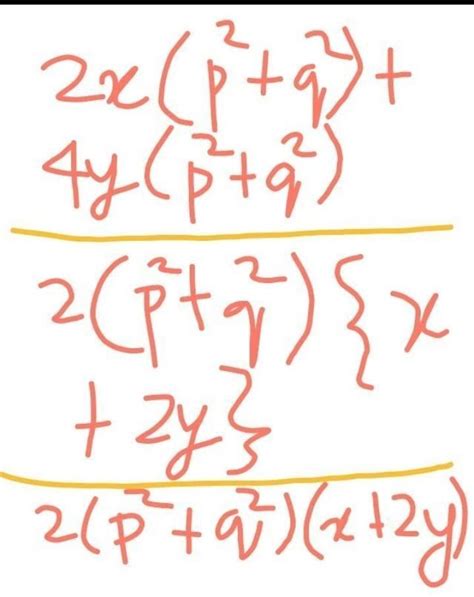 2x(p²+q²)+
4y(p²+q²)
2(p²+q²){x
+2y}
2(p²+q²)(x+2y)